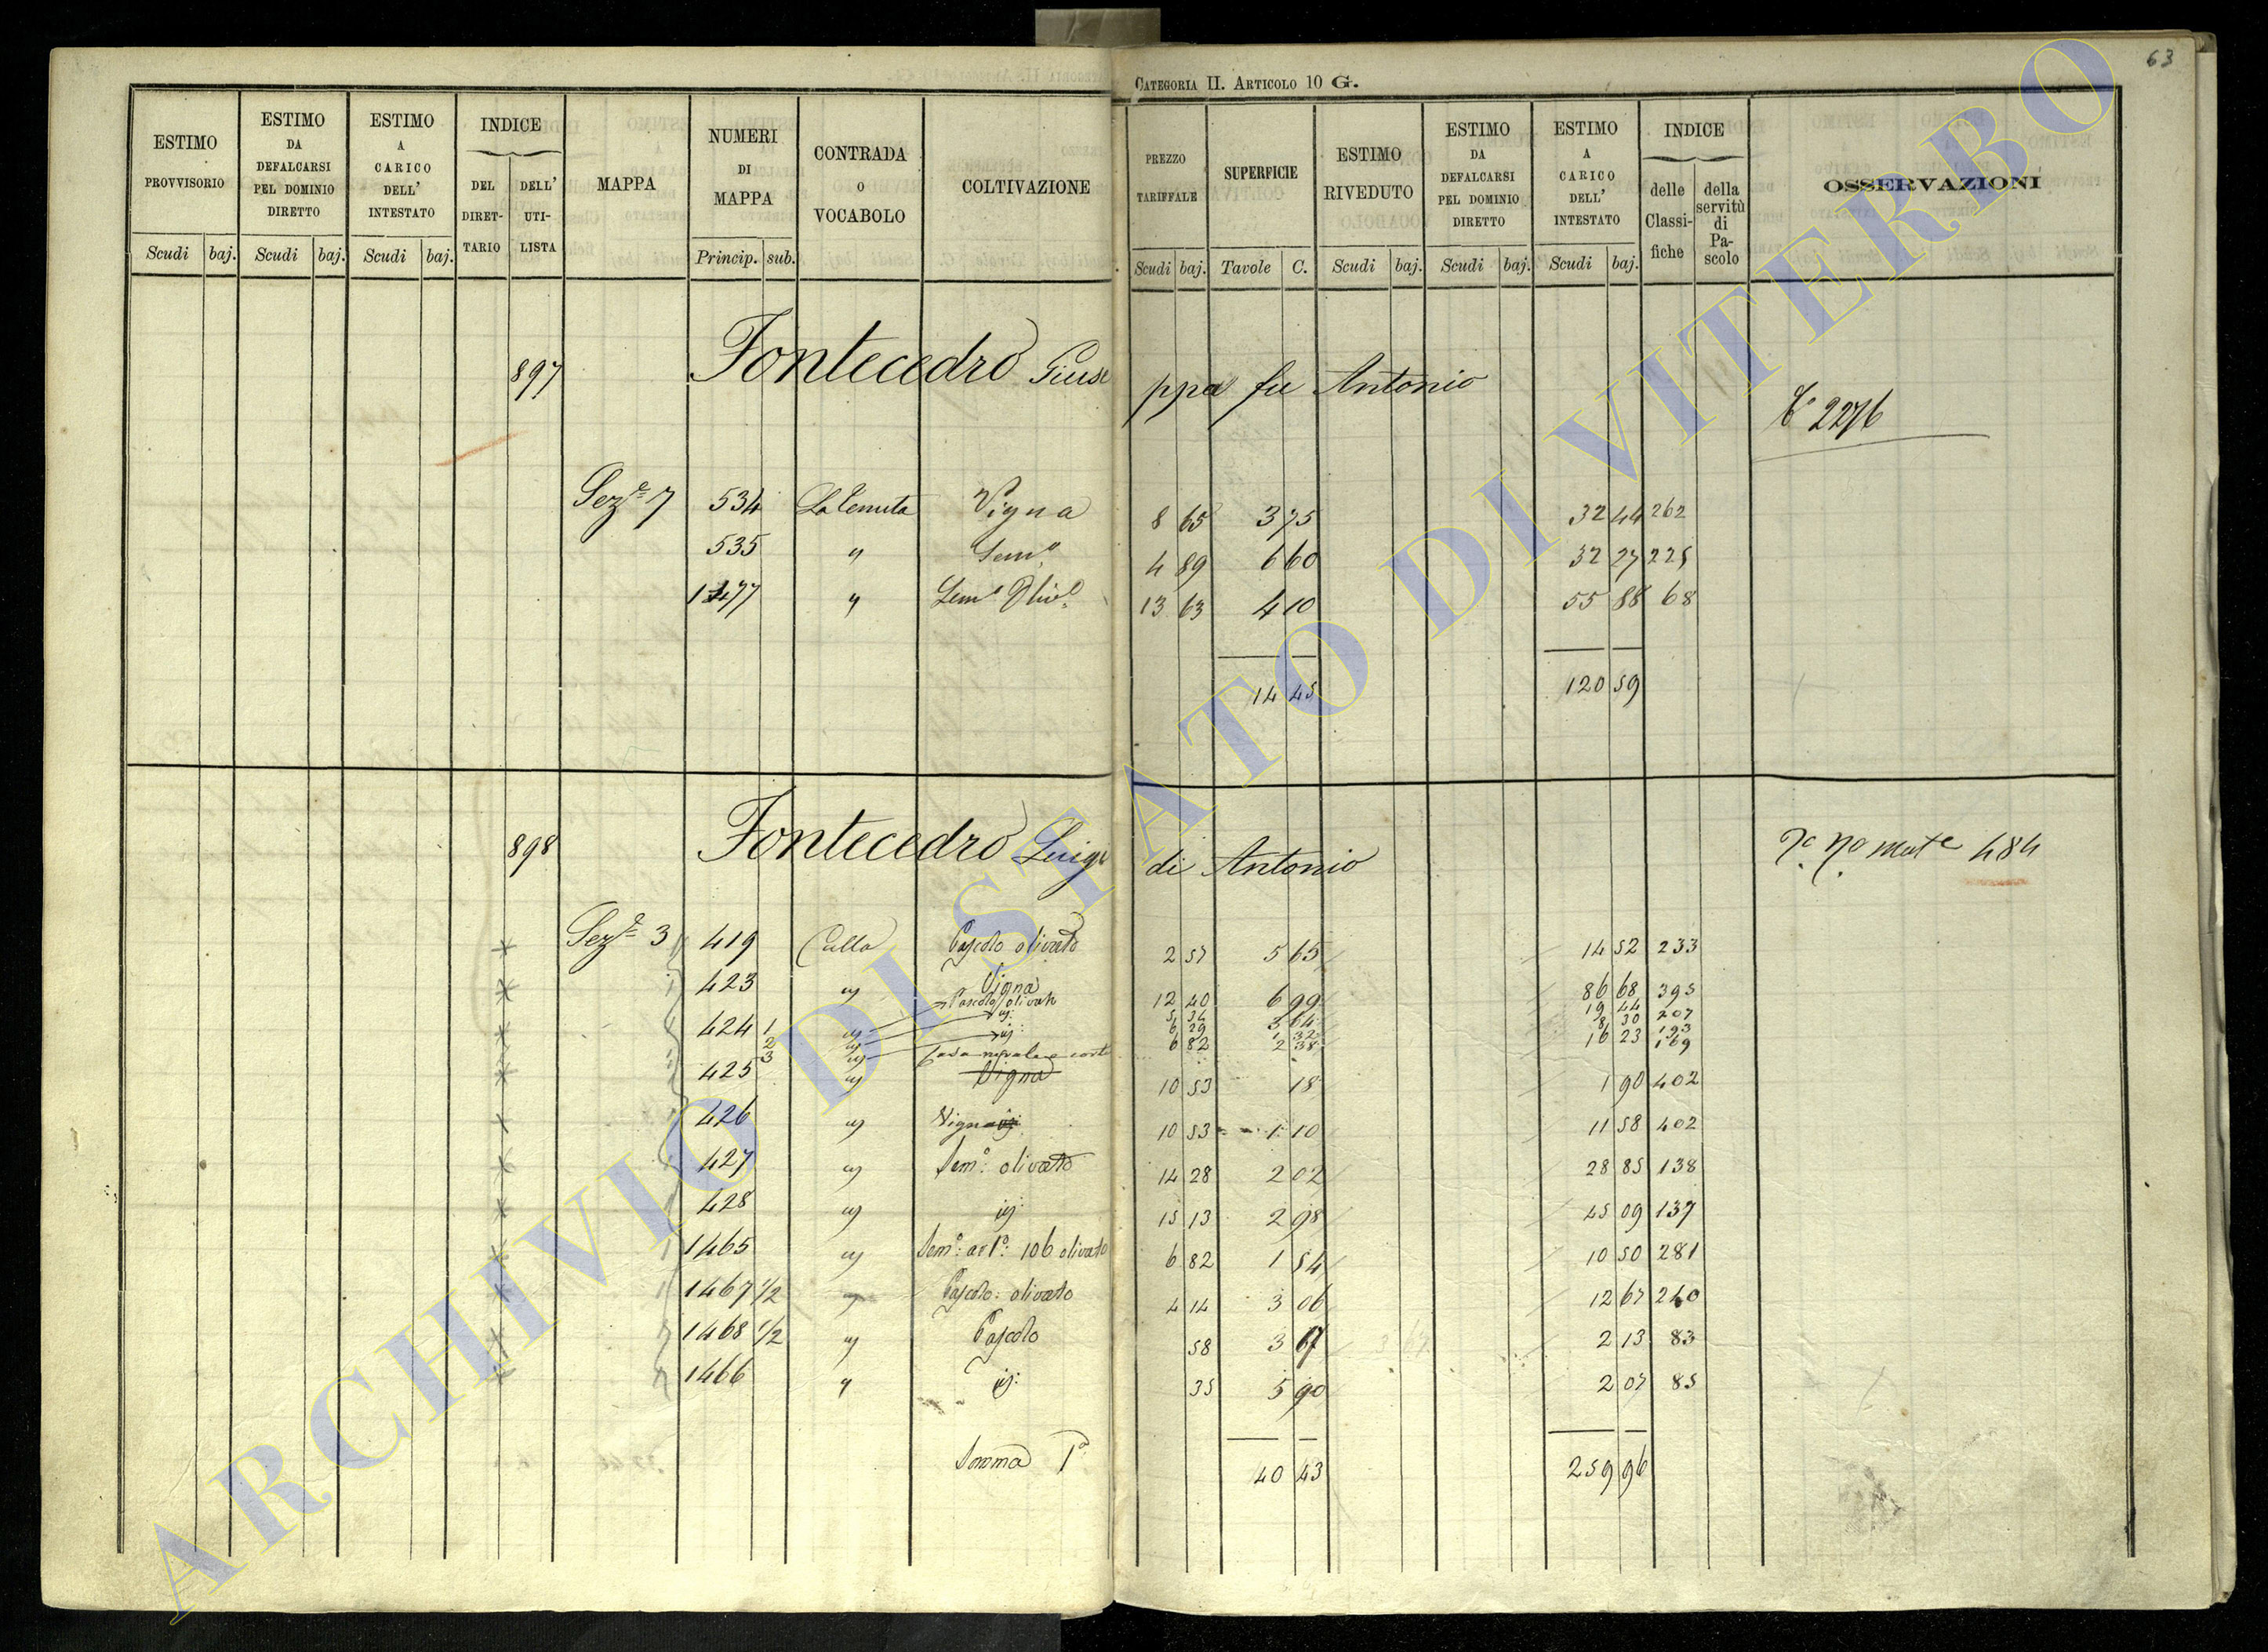 63
CATEGORIA II. ARTICOLO 10 G.
ESTIMO PROVVISORIO Scudi baj. ESTIMO DA DEFALCARSI PEL DOMINIO DIRETTO Scudi baj. ESTIMO A CARICO DELL' INTESTATO Scudi baj. INDICE DEL DIRETTARIO DELL' UTILISTA MAPPA NUMERI DI MAPPA Princip. sub. CONTRADA O VOCABOLO COLTIVAZIONE PREZZO TARIFFALE Scudi baj. SUPERFICIE Tavole C. ESTIMO RIVEDUTO Scudi baj. ESTIMO DA DEFALCARSI PEL DOMINIO DIRETTO Scudi baj. ESTIMO A CARICO DELL' INTESTATO Scudi baj. INDICE delle Classifiche della servitù di Pascolo OSSERVAZIONI
897 Fontecedro Giuseppa fu Antonio
2276
Sez.e 7 534 La Tenuta Vigna 8 65 3 75 32 44 262
535 " Sem.o 4 89 6 60 32 27 225
1477 " Sem.o Oliv.o 13 63 4 10 55 88 68
14 45 120 59
898 Fontecedro Luigi di Antonio
484
Sez.e 3 419 Cullo Pascolo olivato 2 57 5 65 14 52 233
423 " Vigna 12 40 6 99 86 68 395
424 1 " Pascolo olivato 5 34 3 64 19 44 207
2 " id: 6 29 1 32 8 30 193
3 " id: 6 82 2 38 16 23 169
425 " Casa rurale e corte Vigna 10 53 18 1 90 402
426 " Vigna id: 10 53 1 10 11 58 402
427 " Sem.o: olivato 14 28 2 02 28 85 138
428 " id: 15 13 2 98 45 09 137
1465 " Sem.o: art.o: 106 olivato 6 82 1 54 10 50 281
1467 1/2 " Pascolo: olivato 4 14 3 06 12 67 240
1468 1/2 " Pascolo 58 3 67 2 13 83
1466 " id: 35 5 90 2 07 85
Somma 1a 40 43 259 96
ARCHIVIO DI STATO DI VITERBO